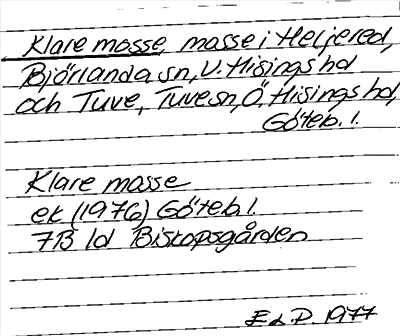 Klare mosse, mosse i Heljered,
Björlanda sn, V. Hisings hd
och Tuve, Tuve sn, Ö. Hisings hd,
Göteb. l.
Klare mosse
ek (1976) Göteb. l.
7B 1d Biskopsgården
E L.P. 1977